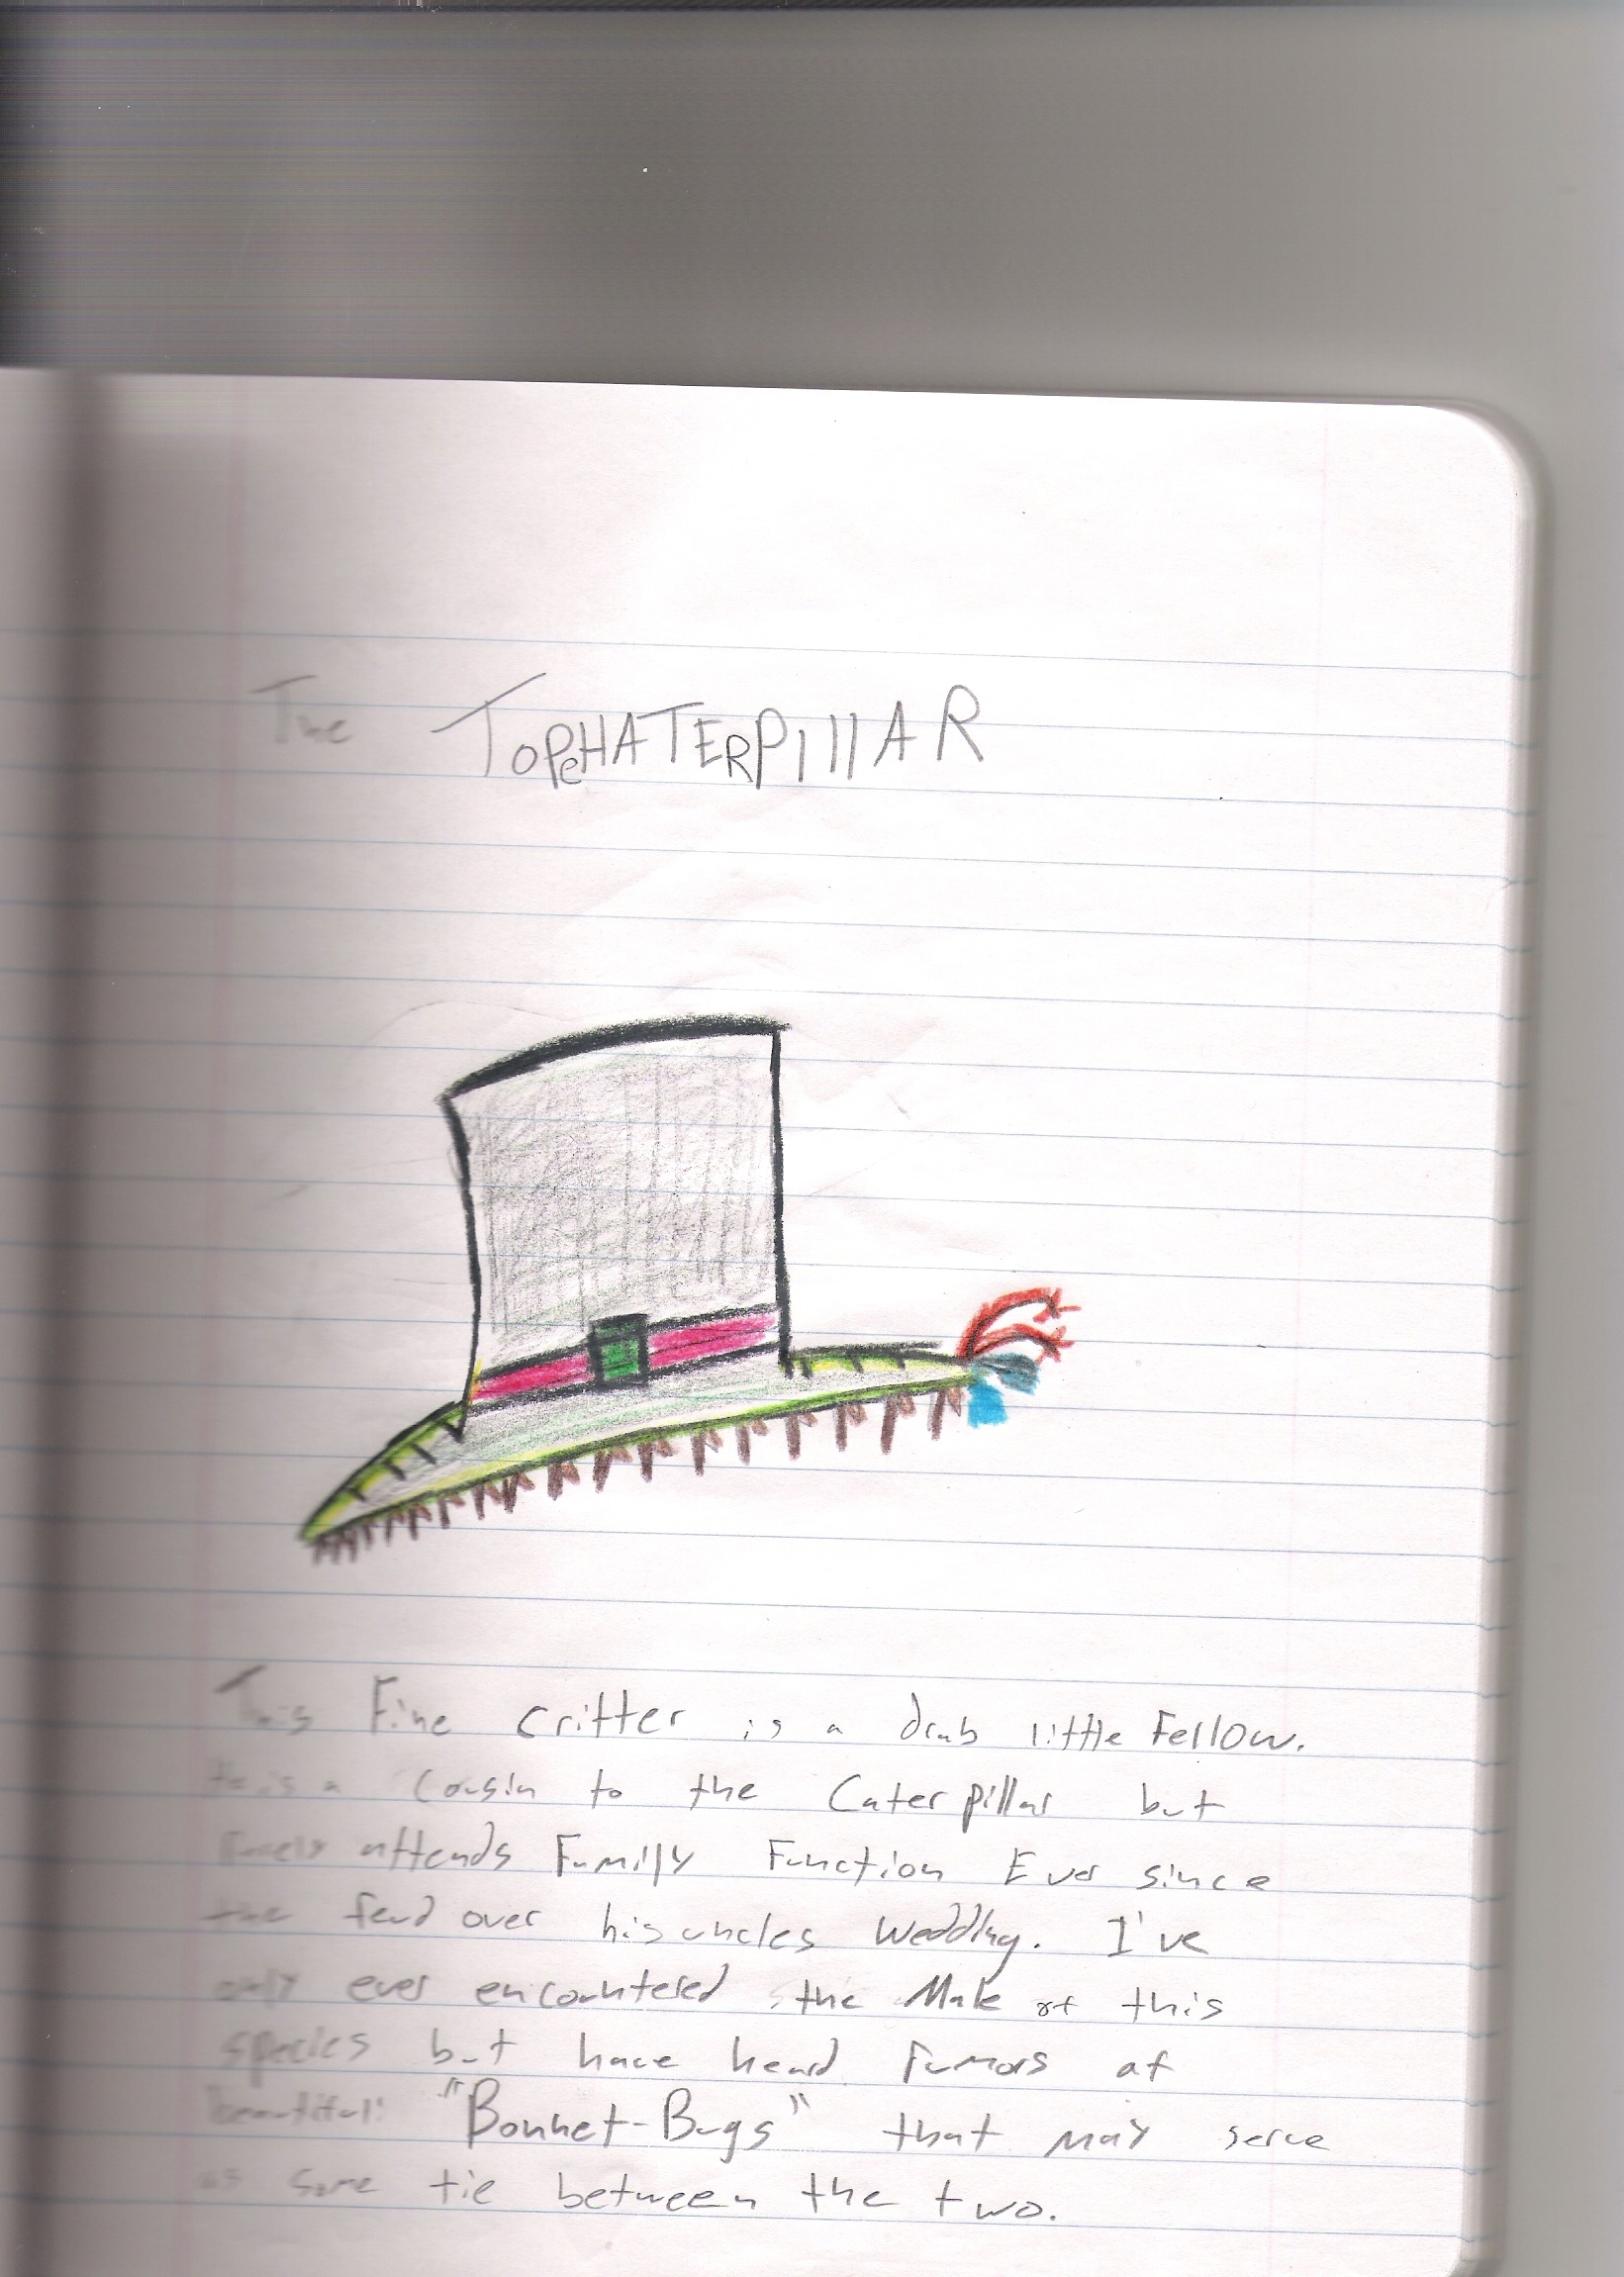 The TOPeHATERPIllAR
This Fine critter is a drab little Fellow.
He is a Cousin to the Caterpillar but
Rarely attends Family Function Ever since
the feud over his uncles Wedding. I've
only ever encountered the Male of this
species but have heard rumors of
beautiful "Bonnet-Bugs" that may serve
as some tie between the two.